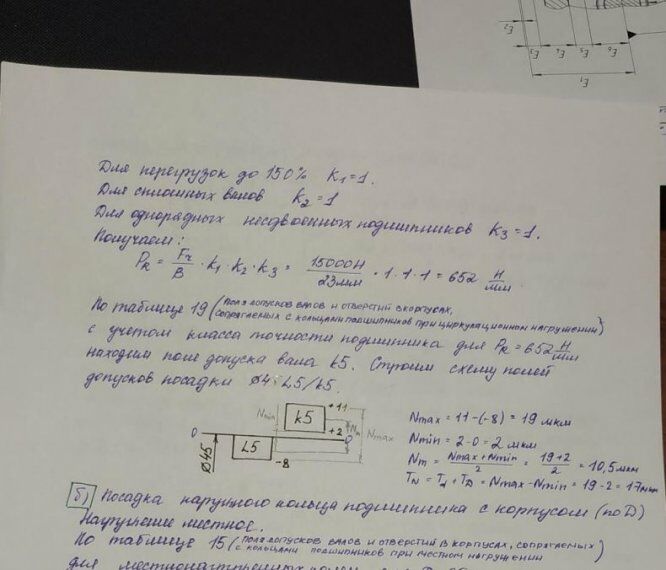 Для перегрузок до 150% K1=1.
Для сплошных валов K2=1
Для однорядных несдвоенных подшипников K3=1.
Получаем:
PR = Fr/B · K1 · K2 · K3 = 15000Н/23мм · 1 · 1 · 1 = 652 Н/мм
По таблице 19 (поля допусков валов и отверстий в корпусах,
сопрягаемых с кольцами подшипников при циркуляционном нагружении)
с учетом класса точности подшипника для PR = 652 Н/мм
находим поле допуска вала k5. Строим схему полей
допусков посадки ø45 L5/k5.
Nmin k5 +11 +2 Nm Nmax
0 L5 -8 0
ø45
Nmax = 11-(-8) = 19 мкм
Nmin = 2-0 = 2 мкм
Nm = Nmax+Nmin/2 = 19+2/2 = 10,5 мкм
TN = Td + TD = Nmax-Nmin = 19-2 = 17мкм
б) Посадка наружного кольца подшипника с корпусом (по D)
Нагружение местное.
По таблице 15 (поля допусков валов и отверстий в корпусах, сопрягаемых
с кольцами подшипников при местном нагружении
для
E2
E3 E4 E5 E6
E1